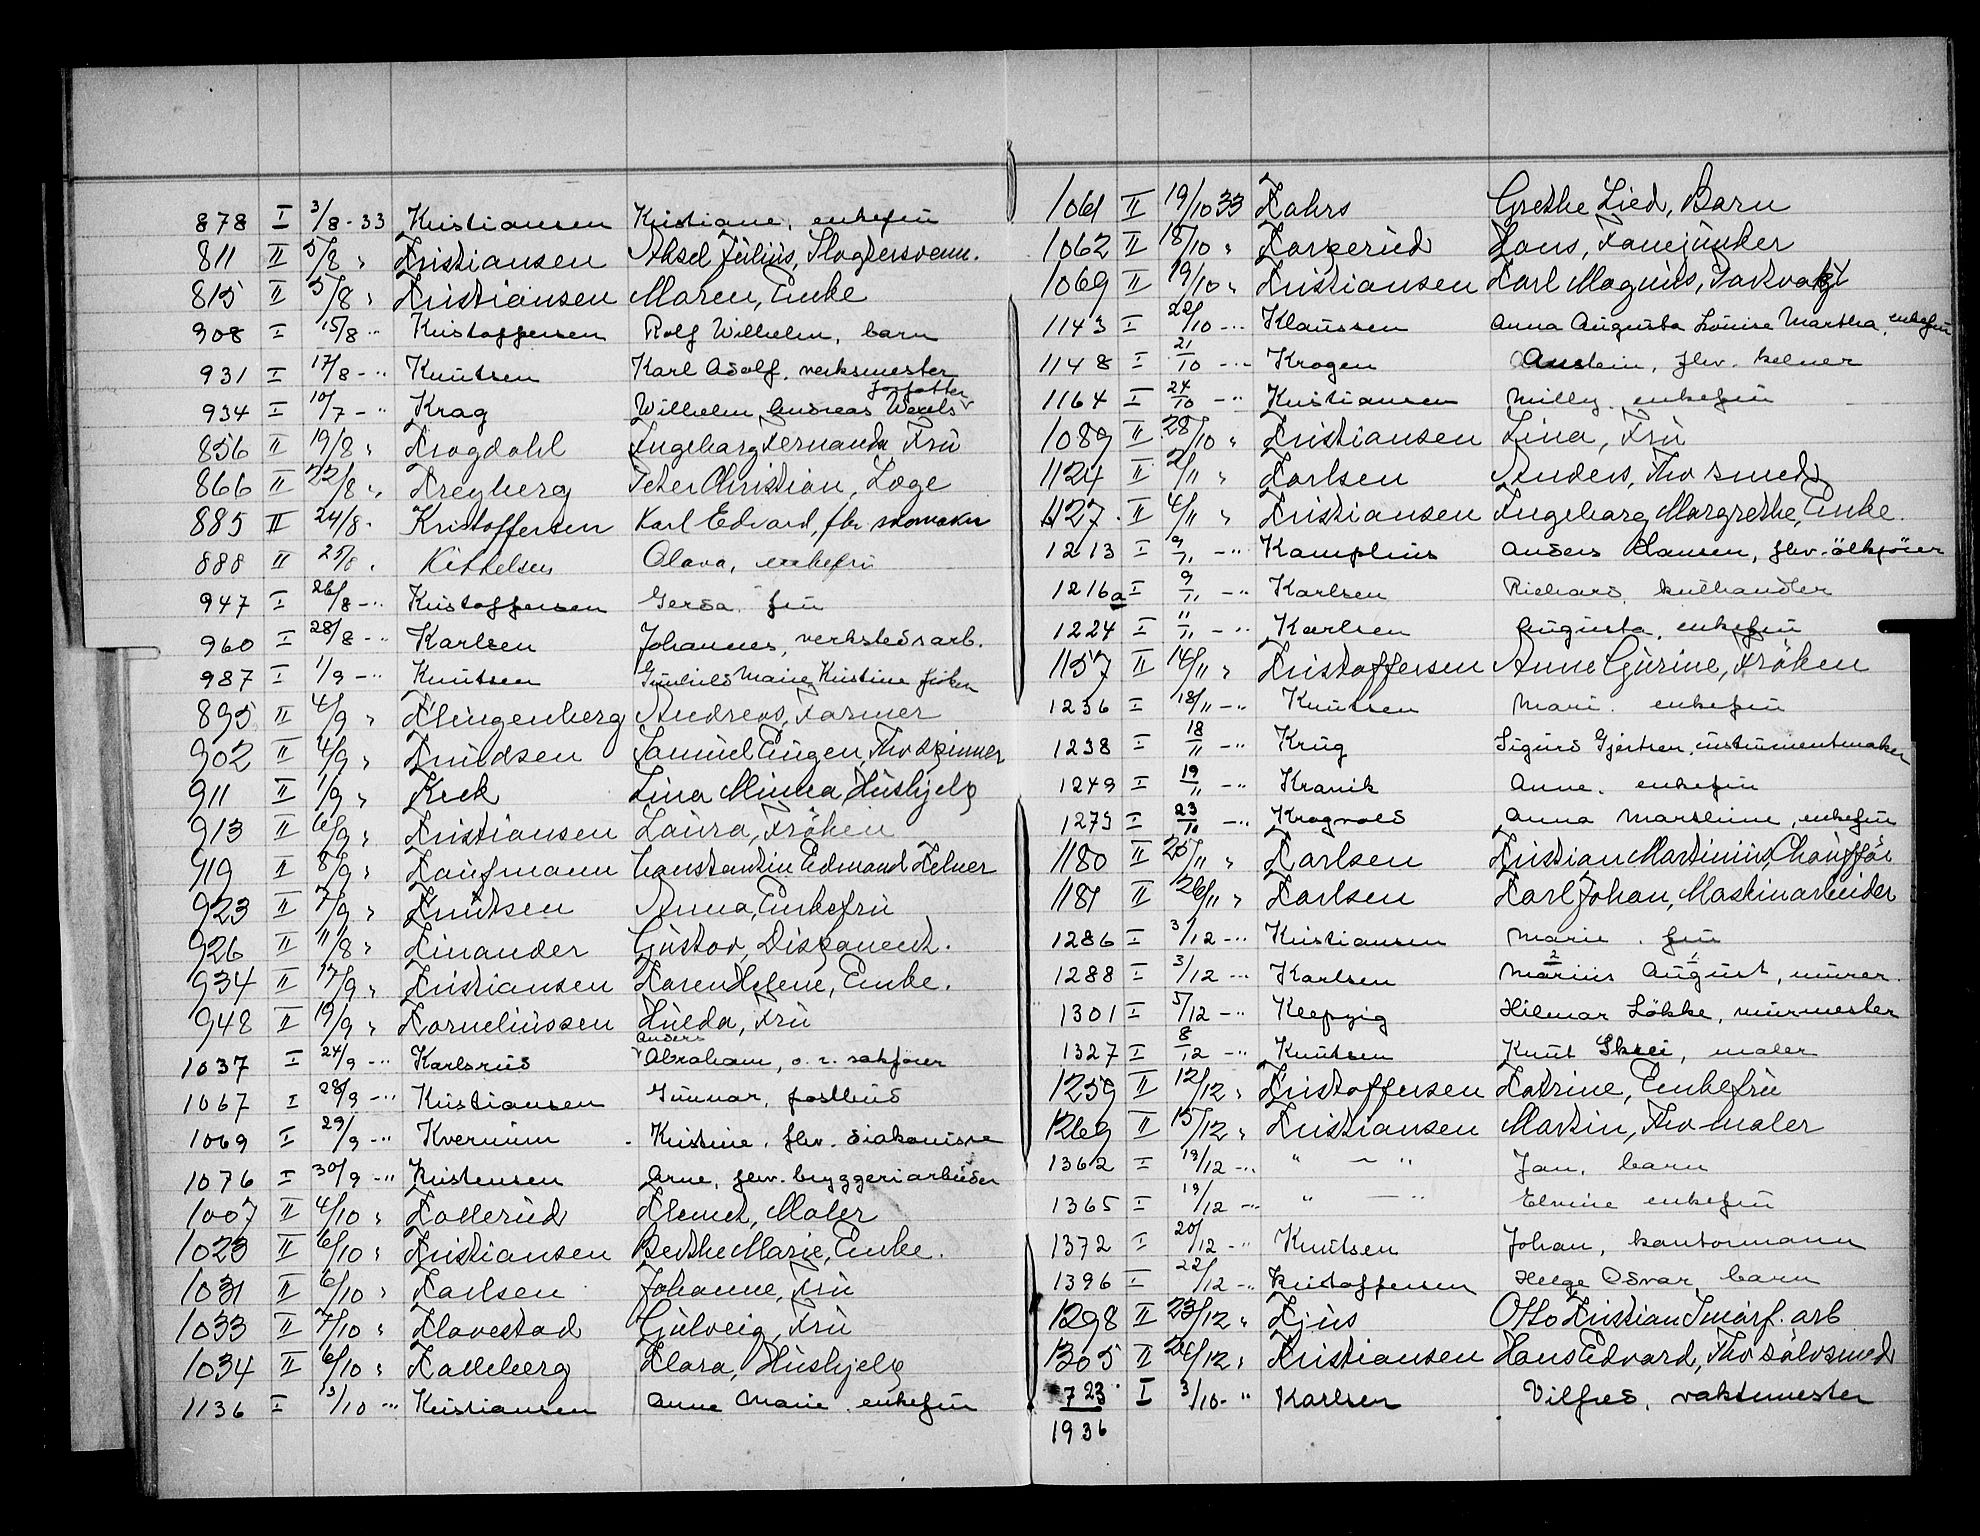 878 I 3/8-33 Kristiansen Kristiane, enkefru
811 II 5/8 " Kristiansen Aksel Julius, Slagtersvenn.
815 II 5/8 " Kristiansen Maren, Enke
908 I 15/8 -"- Kristoffersen Rolf Wilhelm, barn
931 I 17/8 -"- Knutsen Karl Adolf, verksmester
934 I 10/7 -"- Krag Wilhelm Andreas Wexels forfatter
856 II 19/8 " Krogdahl Ingeborg Fernanda Fru
866 II 22/8 " Kreyberg Peter Christian, Læge
885 II 24/8 " Kristoffersen Karl Edvard, fhv skomaker
888 II 25/8 " Kittelsen Olava, enkefru
947 I 26/8 -"- Kristoffersen Gerda, fru
960 I 28/8 -"- Karlsen Johannes, verkstedsarb.
987 I 1/9 -"- Knutsen Gunhild Marie Kristine frøken
895 II 4/9 " Klingenberg Andreas, Farmer
902 II 4/9 " Knudsen Samuel Eugen, Fhv Spinner
911 II 1/9 " Keck Lina Minna, Hushjelp
913 II 6/9 " Kristiansen Laura, Fröken
919 II 8/9 " Kaufmann Constantin Edmand Kelner
923 II 7/9 " Knutsen Anna, Enkefru
926 II 11/8 " Kinander Gustav, Disponent.
934 II 17/9 " Kristiansen Karen Helene, Enke.
948 II 19/9 " Korneliussen Hulda, Fru
1037 I 24/9 -"- Karlsrud Anders Abraham, o.r. sakfører
1067 I 28/9 -"- Kristiansen Gunnar, postbud
1069 I 29/9 -"- Kvernum Kristine, fhv. diakonisse
1076 I 30/9 -"- Kristensen Arne, fhv. bryggeriarbeider
1007 II 4/10 " Kollerud Klemet, Maler
1023 II 6/10 " Kristiansen Berthe Marie, Enke.
1031 II 6/10 " Karlsen Johanne, Fru
1033 II 7/10 " Klavestad Gulveig, Fru
1034 II 6/10 " Kalleberg Klara, Hushjelp
1136 I 13/10 -"- Kristiansen Anne Marie, enkefru
1061 II 19/10 33 Kahrs Grethe Lied, Barn
1062 II 18/10 " Korperud Hans, Fanejunker
1069 II 19/10 " Kristiansen Karl Magnus, Parkvakt
1143 I 20/10 -"- Klaussen Anna Augusta Louise Martha, enkefru
1148 I 21/10 -"- Krogen Anstein, fhv. kelner
1164 I 24/10 -"- Kristiansen Milly, enkefru
1089 II 28/10 " Kristiansen Lina, Fru
1124 II 2/11 " Karlsen Anders, Fhv smed
1127 II 4/11 " Kristiansen Ingeborg Margrethe, Enke.
1213 I 9/11 -"- Kamphus Anders Hansen, fhv. ölkjörer
1216a I 9/11 -"- Karlsen Richard, kulhandler
1224 I 11/11 -"- Karlsen Augusta, enkefru
1157 II 14/11 " Kristoffersen Anne Gurine, Fröken
1236 I 18/11 -"- Knutsen Mari, enkefru
1238 I 18/11 -"- Krug Sigurd Gjertsen, instrumentmaker
1249 I 19/11 -"- Kravik Anne, enkefru
1273 I 23/10 -"- Krogvold Anna Marthine, enkefru
1180 II 25/11 " Karlsen Kristian Martinius, Chaufför
1181 II 26/11 " Karlsen Karl Johan, Maskinarbeider
1286 I 3/12 -"- Kristiansen Marie, fru
1288 I 3/12 -"- Karlsen Marius August, murer
1301 I 5/12 -"- Kleppig Hilmar Lökke, murmester
1327 I 8/12 -"- Knutsen Knut Skrei, maler
1259 II 12/12 " Kristoffersen Katrine, Enkefru
1269 II 15/12 " Kristiansen Martin, Fhv maler
1362 I 19/12 -"- " - " Jan, barn
1365 I 19/12 -"- " - " Elvine enkefru
1372 I 20/12 -"- Knutsen Johan, kontormann
1396 I 22/12 -"- Kristoffersen Helge Odvar, barn
1298 II 23/12 " Kjus Otto Kristian Smårf. arb
1305 II 26/12 " Kristiansen Hans Edvard, Fhv sölvsmed
723 I 3/10 - " Karlsen Vilfred, vaktmester
1936